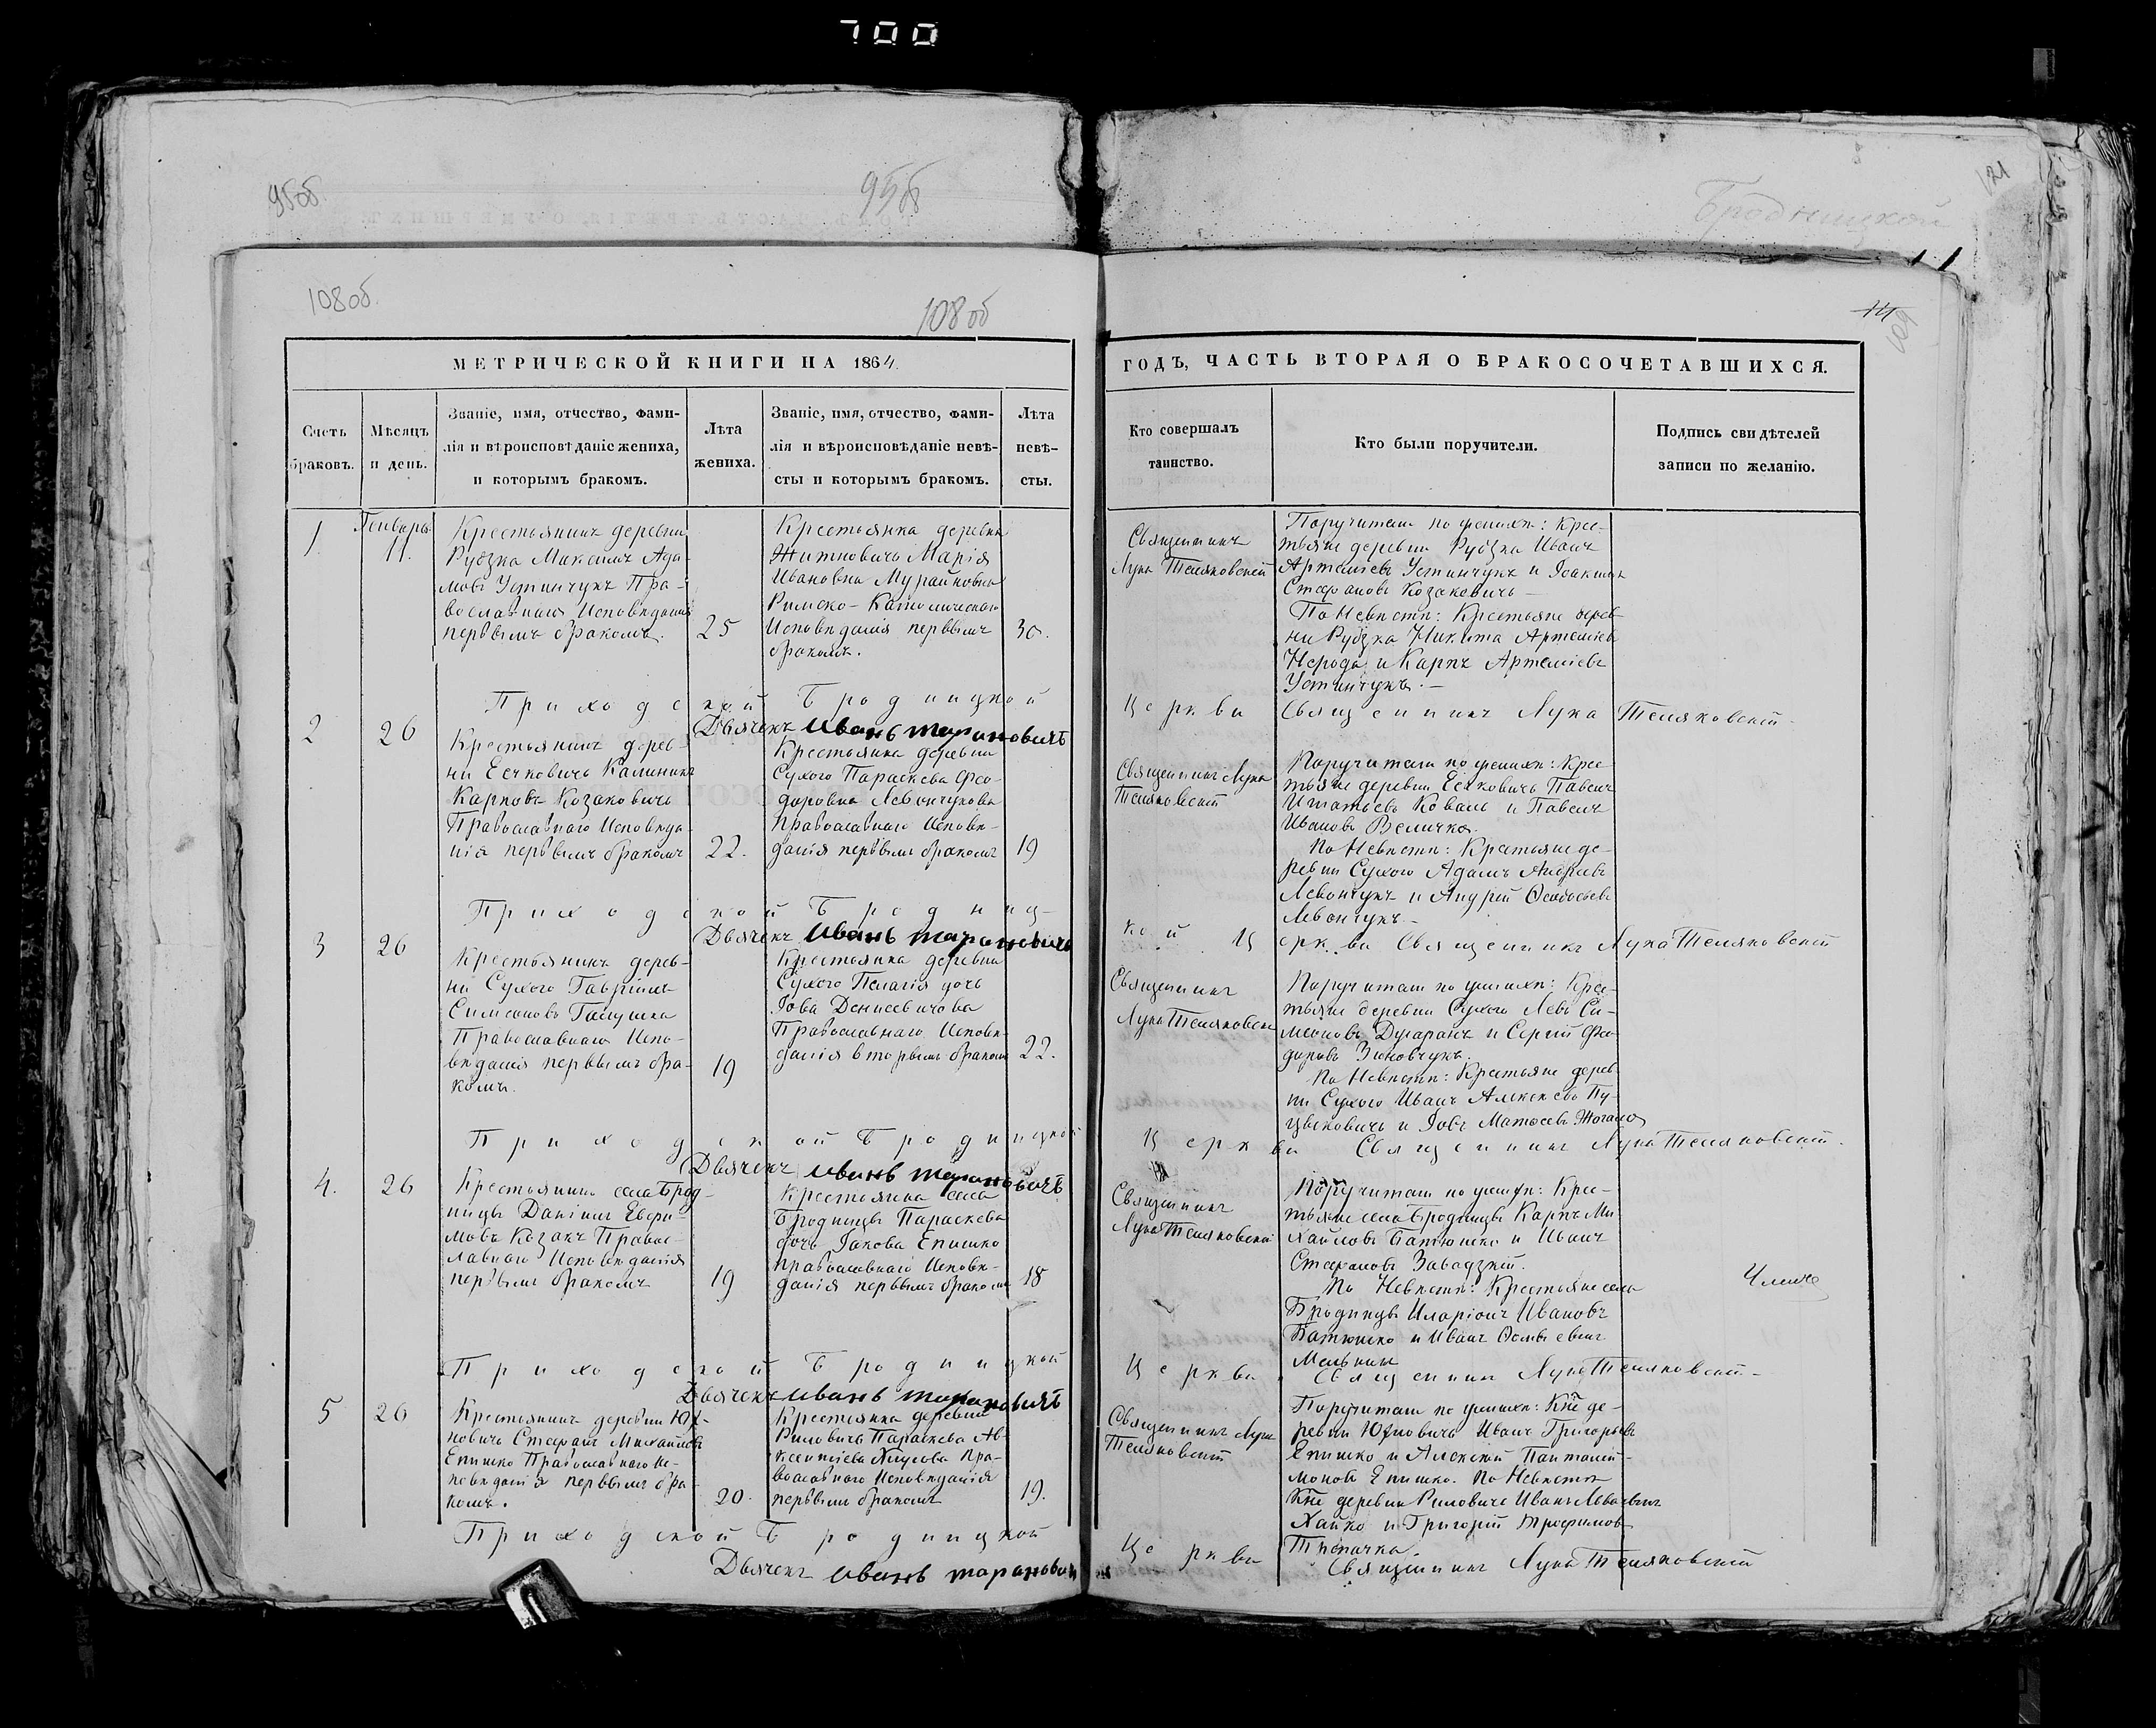 700
95об.
95об
Бродницкой
121
108об.
108об
14
109
МЕТРИЧЕСКОЙ КНИГИ НА 1864.
ГОДЪ, ЧАСТЬ ВТОРАЯ О БРАКОСОЧЕТАВШИХСЯ.
Счетъ браковъ.
Мѣсяцъ и день.
Званіе, имя, отчество, фами-
лія и вѣроисповѣданіе жениха,
и которымъ бракомъ.
Лѣта жениха.
Званіе, имя, отчество, фами-
лія и вѣроисповѣданіе невѣ-
сты и которымъ бракомъ.
Лѣта невѣ-
сты.
Кто совершалъ
таинство.
Кто были поручители.
Подпись свидѣтелей
записи по желанію.
1
Генварь
11.
Крестьянинъ деревни
Рудзка Максимъ Ада-
мовъ Устинчукъ Пра-
вославнаго Исповѣданія
первымъ бракомъ.
25
Крестьянка деревни
Житновичь Марія
Ивановна
Римско-Католическаго
Исповѣданія первымъ
бракомъ.
30.
Священникъ
Лука Теляковскій
Поручители по женихѣ: Крес-
тьяне деревни Рудзка Иванъ
Артеміевъ Устинчукъ и Іоакимъ
Стефановъ Козакевичь
По Невѣстѣ: Крестьяне дерев-
ни Рудзка Никита Артеміевъ
Нерода и Карпъ Артеміевъ
Устинчукъ.
Приходской Бродницкой
Церкви Священникъ Лука Теляковскій
Дьячекъ Иванъ Тарановичъ
2
26
Крестьянинъ дерев-
ни Ечковичь Калиникъ
Карповъ Козаковичь
Православнаго Исповѣда-
нія первымъ бракомъ
22.
Крестьянка деревни
Сухого Параскева Фео-
доровна Левончукова
Православнаго Исповѣ-
данія первымъ бракомъ
19
Священникъ Лука
Теляковскій
Поручители по женихѣ: Крес-
тьяне деревни Ечковичь Павелъ
Игнатьевъ Коваль и Павелъ
Ивановъ Величко.
По Невѣстѣ: Крестьяне де-
ревни Сухого Адамъ Андреевъ
Левончукъ и Андрей Феодосьевъ
Левончукъ.
Приходской Бродниц-
кой Церкви Священникъ Лука Теляковскій
Дьячекъ Иванъ Тарановичъ
3
26
Крестьянинъ дерев-
ни Сухого Гавріилъ
Симеоновъ
Православнаго Испо-
вѣданія первымъ бра-
комъ.
19
Крестьянка деревни
Сухого Пелагія дочь
Іова Денисевичова
Православнаго Исповѣ-
данія вторымъ бракомъ
22.
Священникъ
Лука Теляковскій
Поручители по женихѣ: Крес-
тьяне деревни Сухого Левъ Си-
меоновъ и Сергій Фео-
доровъ Зиновчукъ.
По Невѣстѣ: Крестьяне дерев-
ни Сухого Иванъ Алексѣевъ Пу-
цыковичь и Іовъ Матвѣевъ
Приходской Бродницкой
Церкви Священникъ Лука Теляковскій.
Дьячекъ Иванъ Тарановичъ
4.
26
Крестьянинъ села Брод-
ницы Даніилъ Ефри-
мовъ Козакъ Правос-
лавнаго Исповѣданія
первымъ бракомъ
19
Крестьянка села
Бродницы Параскева
дочь Іакова Епишко
православнаго Исповѣ-
данія первымъ бракомъ
18
Священникъ
Лука Теляковскій
Поручители по женихѣ: Крес-
тьяне села Бродницы Карпъ Ми-
хайловъ Батюшко и Иванъ
Стефановъ Завадзкій.
По Невѣстѣ: Крестьяне села
Бродницы Иларіонъ Ивановъ
Батюшко и Иванъ
Мельникъ
Приходской Бродницкой
Церкви Священникъ Лука Теляковскій
Дьячекъ Иванъ Тарановичъ
5
26
Крестьянинъ деревни Юх-
новичь Стефанъ Михайловъ
Епишко Православнаго Ис-
повѣданія первымъ бра-
комъ.
20.
Крестьянка деревни
Риловичь Параскева Ав-
ксентіева Пра-
вославнаго Исповѣданія
первымъ бракомъ
19.
Священникъ Лука
Теляковскій
Поручители по женихѣ: Кне де-
ревни Юхновичь Иванъ Григорьевъ
Епишко и Алексій Пантелей-
моновъ Епишко. По Невѣстѣ
Кне деревни Риловичь Иванъ
Хайко и Григорій Трофимовъ
Приходской Бродницкой
Церкви Священникъ Лука Теляковскій
Дьячекъ Иванъ Тарановичъ